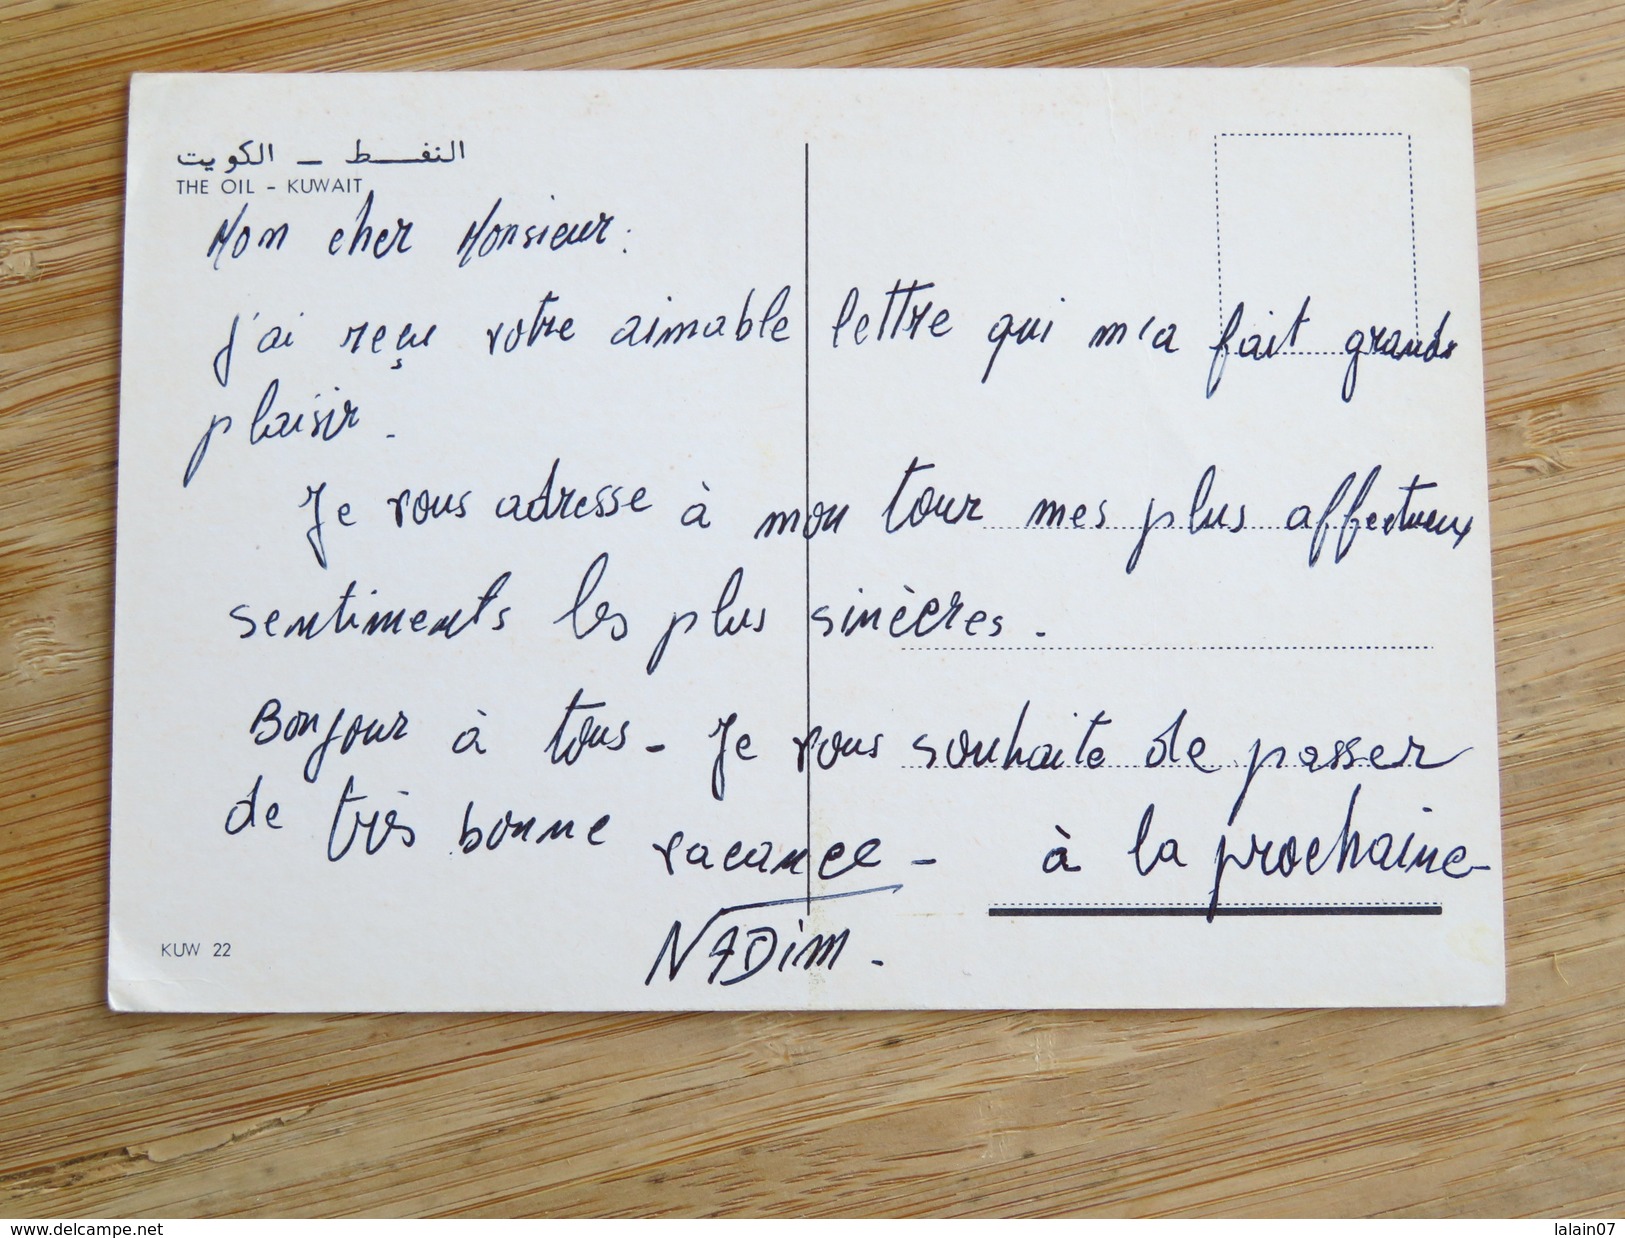 النفـــط ـ الكويت
THE OIL - KUWAIT
Mon cher Monsieur:
J'ai reçu votre aimable lettre qui m'a fait grande
plaisir.
Je vous adresse à mon tour mes plus affectueux
sentiments les plus sincères.
Bonjour à tous - Je vous souhaite de passer
de très bonne vacance - à la prochaine-
NADim.
KUW 22
www.delcampe.net
lalain07